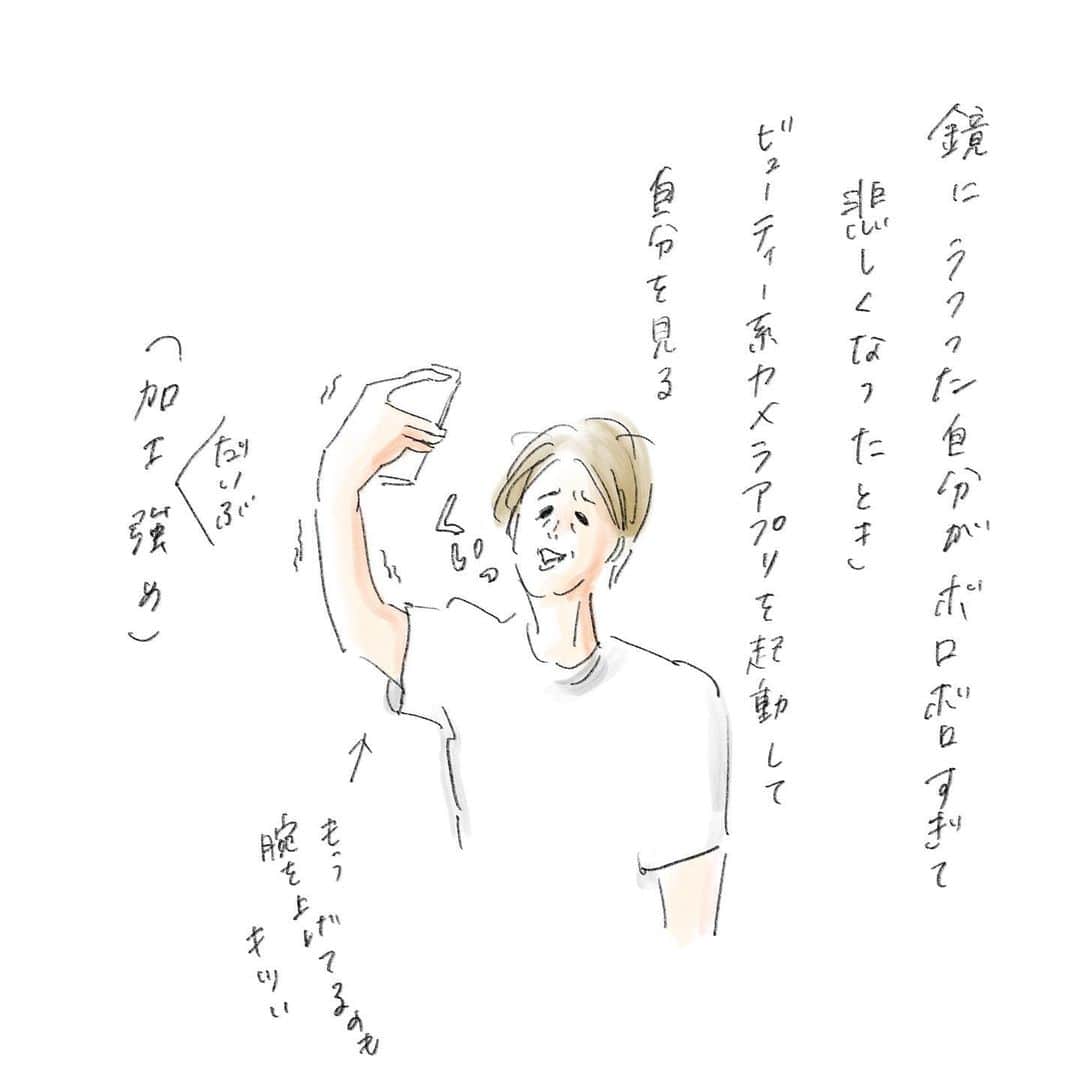 鏡にうつった自分がボロボロすぎて
悲しくなったとき
ビューティー系カメラアプリを起動して
自分を見る
くいっ
だいぶ
(加工強め)
もう
腕を上げてるのも
キツい